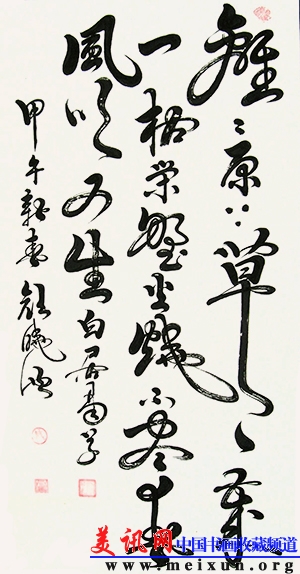 離〻原上草一歲
一枯榮野火燒不盡春
風吹又生白居易
甲午新春
美讯网
中国书画收藏频道
www.meixun.org